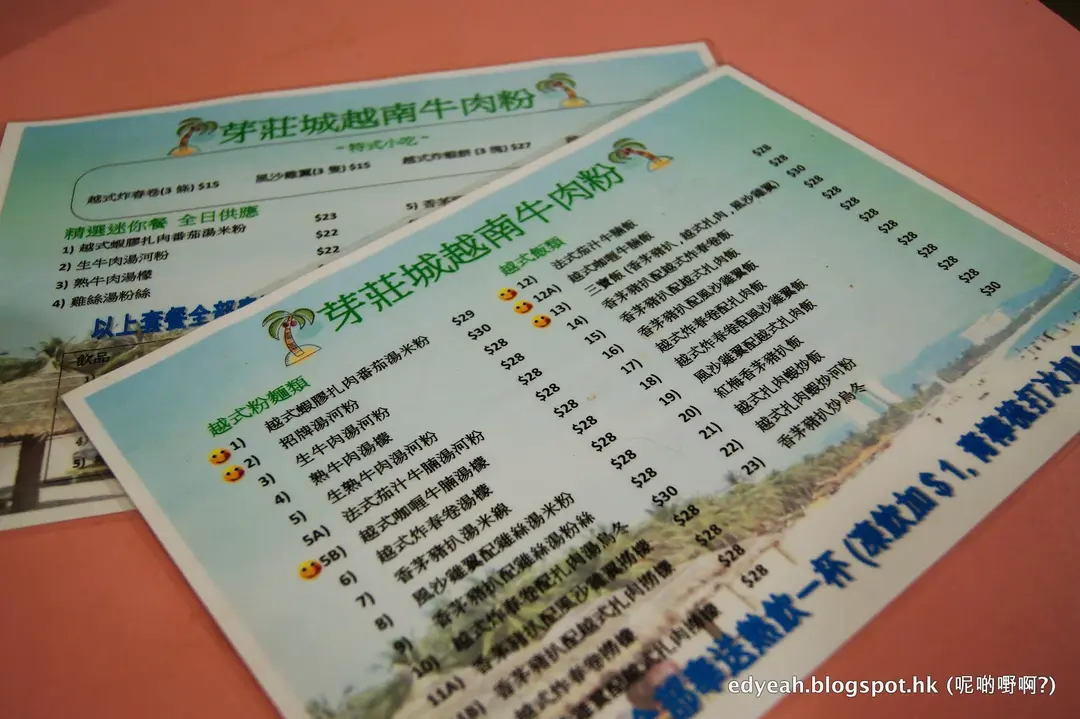 芽莊城越南牛肉粉
~特式小吃~
越式炸春卷(3 條) $15
風沙雞翼(3 隻) $15
越式炸蝦餅 (3 塊) $27
精選迷你餐 全日供應
1) 越式蝦膠扎肉番茄湯米粉 $23
2) 生牛肉湯河粉 $22
3) 熟牛肉湯檬 $22
4) 雞絲湯粉絲
5) 香茅
以上套餐全部
飲品
芽莊城越南牛肉粉
越式粉麵類
1) 越式蝦膠扎肉番茄湯米粉 $29
2) 招牌湯河粉 $30
3) 生牛肉湯河粉 $28
4) 熟牛肉湯檬 $28
5) 生熟牛肉湯河粉 $28
5A) 法式茄汁牛腩湯河粉 $28
5B) 越式咖喱牛腩湯檬 $28
6) 越式炸春卷湯檬 $28
7) 香茅豬扒湯米線 $28
8) 風沙雞翼配雞絲湯米粉 $28
9) 香茅豬扒配雞絲湯粉絲 $30
10) 越式炸春卷配扎肉湯烏冬 $28
11A) 香茅豬扒配風沙雞翼撈檬 $28
香茅豬扒配越式扎肉撈檬 $28
越式炸春卷撈檬 $28
越式飯類
12) 法式茄汁牛腩飯 $28
12A) 越式咖喱牛腩飯 $28
13) 三寶飯 (香茅豬扒，越式扎肉，風沙雞翼) $30
14) 香茅豬扒配越式炸春卷飯 $28
15) 香茅豬扒配越式扎肉飯 $28
16) 香茅豬扒配風沙雞翼飯 $28
17) 越式炸春卷配扎肉飯 $28
18) 越式炸春卷配風沙雞翼飯 $28
19) 風沙雞翼配越式扎肉飯 $28
20) 紅梅香茅豬扒飯 $28
21) 越式扎肉蝦炒飯 $28
22) 越式扎肉蝦炒河粉 $28
23) 香茅豬扒炒烏冬 $30
全部奉送熱飲一杯 (凍飲加 $ 1, 青檸梳打冰加
edyeah.blogspot.hk (呢啲嘢啊?)